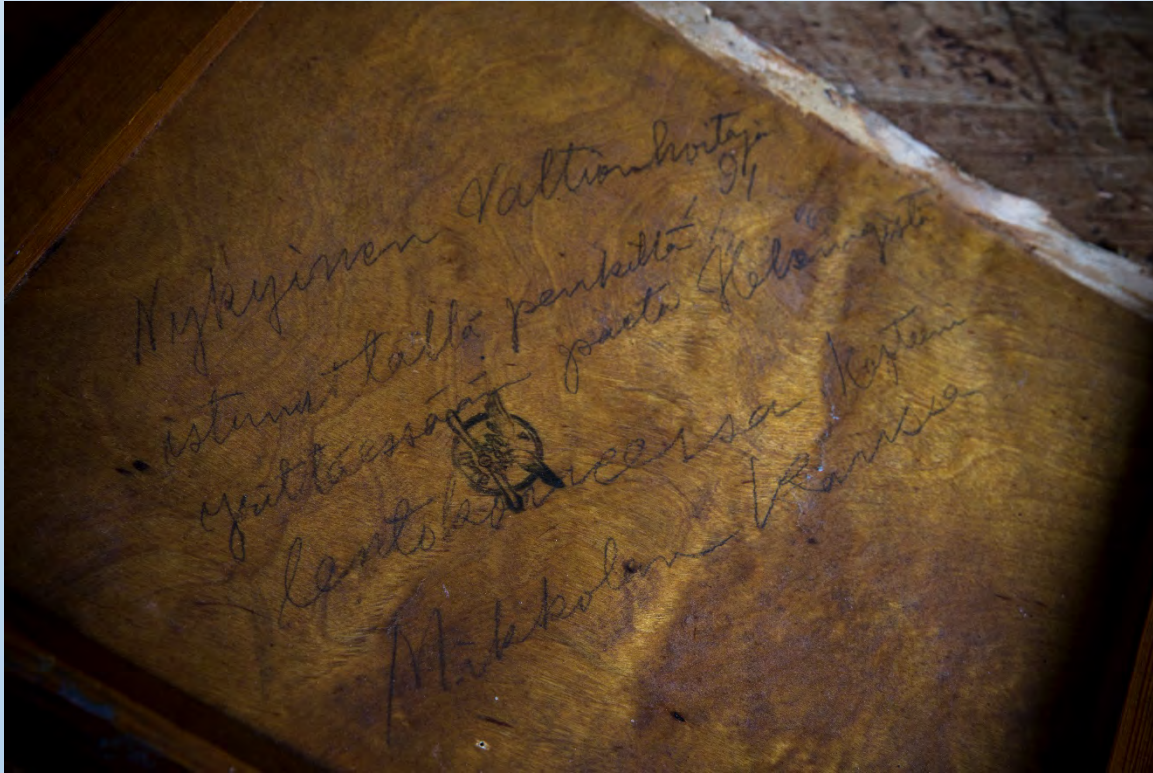 Nykyinen Valtionhoitaja
istunut tällä penkillä
yrittäessään paeta Helsingistä
lentokoneessa kapteni
Mikkolan kanssa